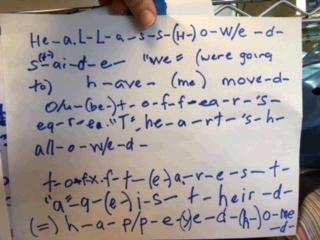 He-a.L-L-a-s-s-(H-)o-w/e-d-
s(H-)ai-d-e- "we= (were going
to) h-ave- (me) move-d-
-(be-)t-o-f-f-ea-r-'s-
ea-r-ea. "T", he-a-rt-'s-h-
all-o-w/e-d-
t-o-f.x.f-t-(e-)a-r-e-s-t-
"a"-q-(e-)i-s-t-heir-d-
(=)h-a-p/p-e-(y)e-d-(h-)o-me
-d-